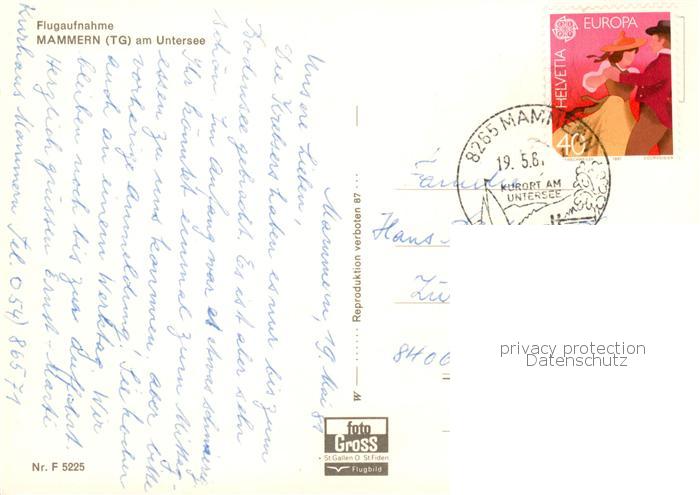 Flugaufnahme
MAMMERN (TG) am Untersee
Mammern, 19. Mai 81
Unsere Lieben,
Die Krebsers haben es nur bis zum
Bodensee gebracht. Es ist aber sehr
schön. Im Anfang war es etwas schwierig.
Ihr könntet einmal zum Mittag-
essen zu uns kommen, aber bitte
vorherige Anmeldung. Sie kochen
auch an einem Werktag. Wir
bleiben noch bis zur Auffahrt.
Herzlich grüssen Ernst + Marti
Kurhaus Mammern Tel. 054) 86571
Nr. F 5225
W ······ Reproduktion verboten 87 ···
foto
Gross
St Gallen O St Fiden
Flugbild
HELVETIA
EUROPA
40
1981
8265 MAMMERN
19.5.81
KURORT AM
UNTERSEE
Familie
Hans
Zü
8400
privacy protection
Datenschutz